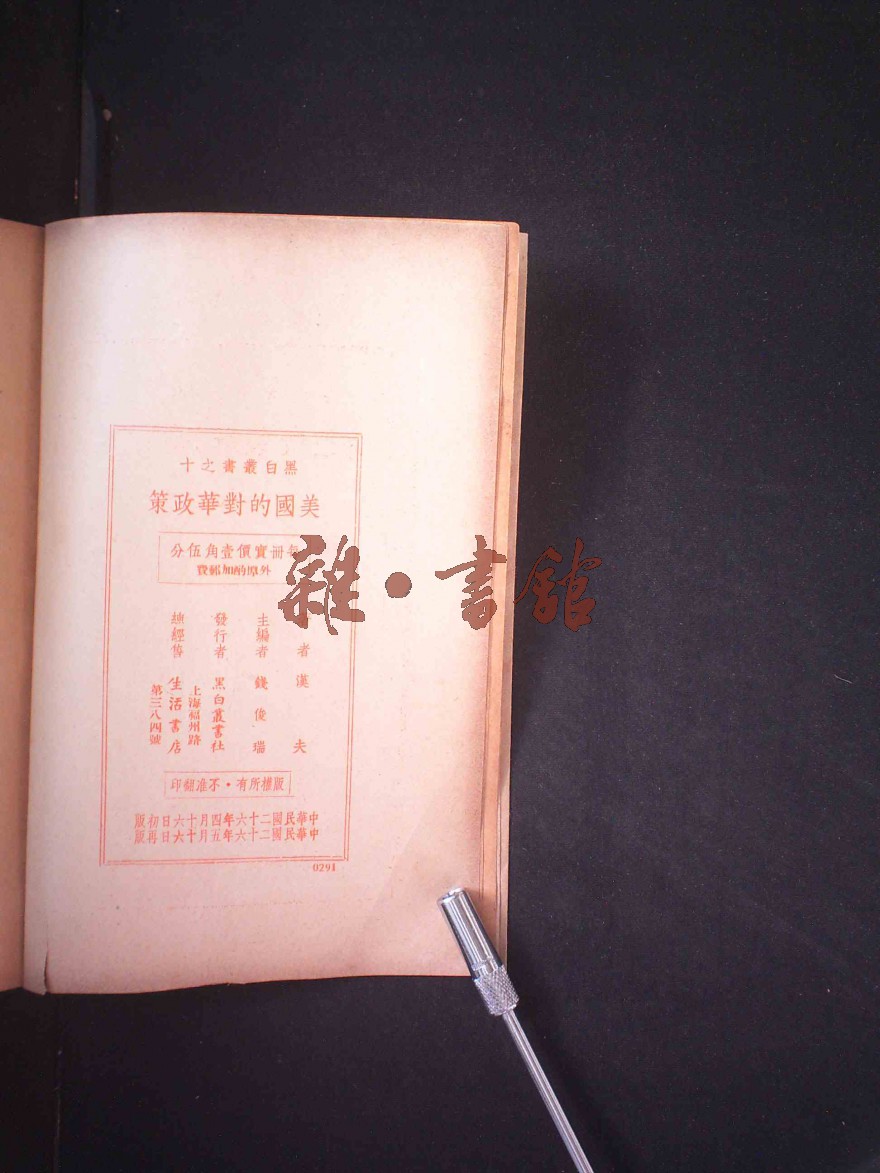 黑白叢書之十
美國的對華政策
冊實價壹角伍分
外埠酌加郵費
者 漢夫
主編者 錢俊瑞
發行者 黑白叢書社
上海福州路
總經售 生活書店
第三八四號
版權所有・不准翻印
中華民國二十六年四月十六日初版
中華民國二十六年五月十六日再版
0291
雜・書館